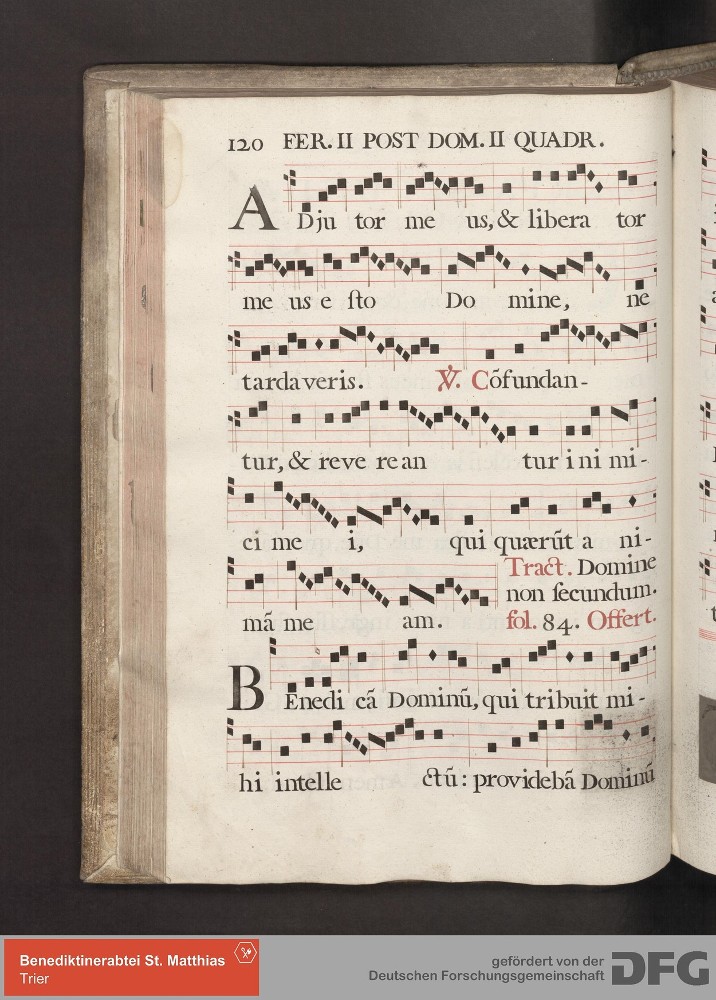 120 FER. II POST DOM. II QUADR.
ADju tor me us, & libera tor
me us e sto Do mine, ne
tardaveris. ℣. Cōfundan-
tur, & reve re an tur i ni mi-
ci me i, qui quærūt a ni-
mā me am. Tract. Domine
non secundum.
fol. 84. Offert.
BEnedi cā Dominū, qui tribuit mi-
hi intelle ctū: providebā Dominū
Benediktinerabtei St. Matthias
Trier
gefördert von der
Deutschen Forschungsgemeinschaft
DFG